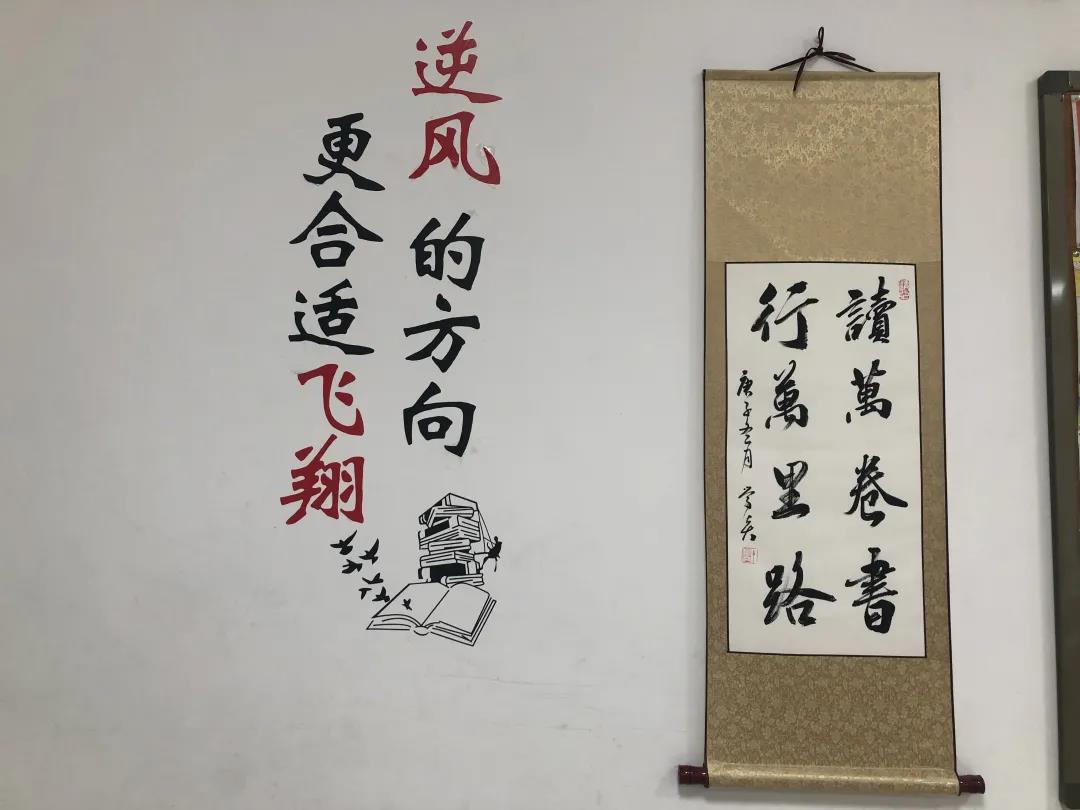 逆风的方向
更合适飞翔
讀萬卷書
行萬里路
庚子五月